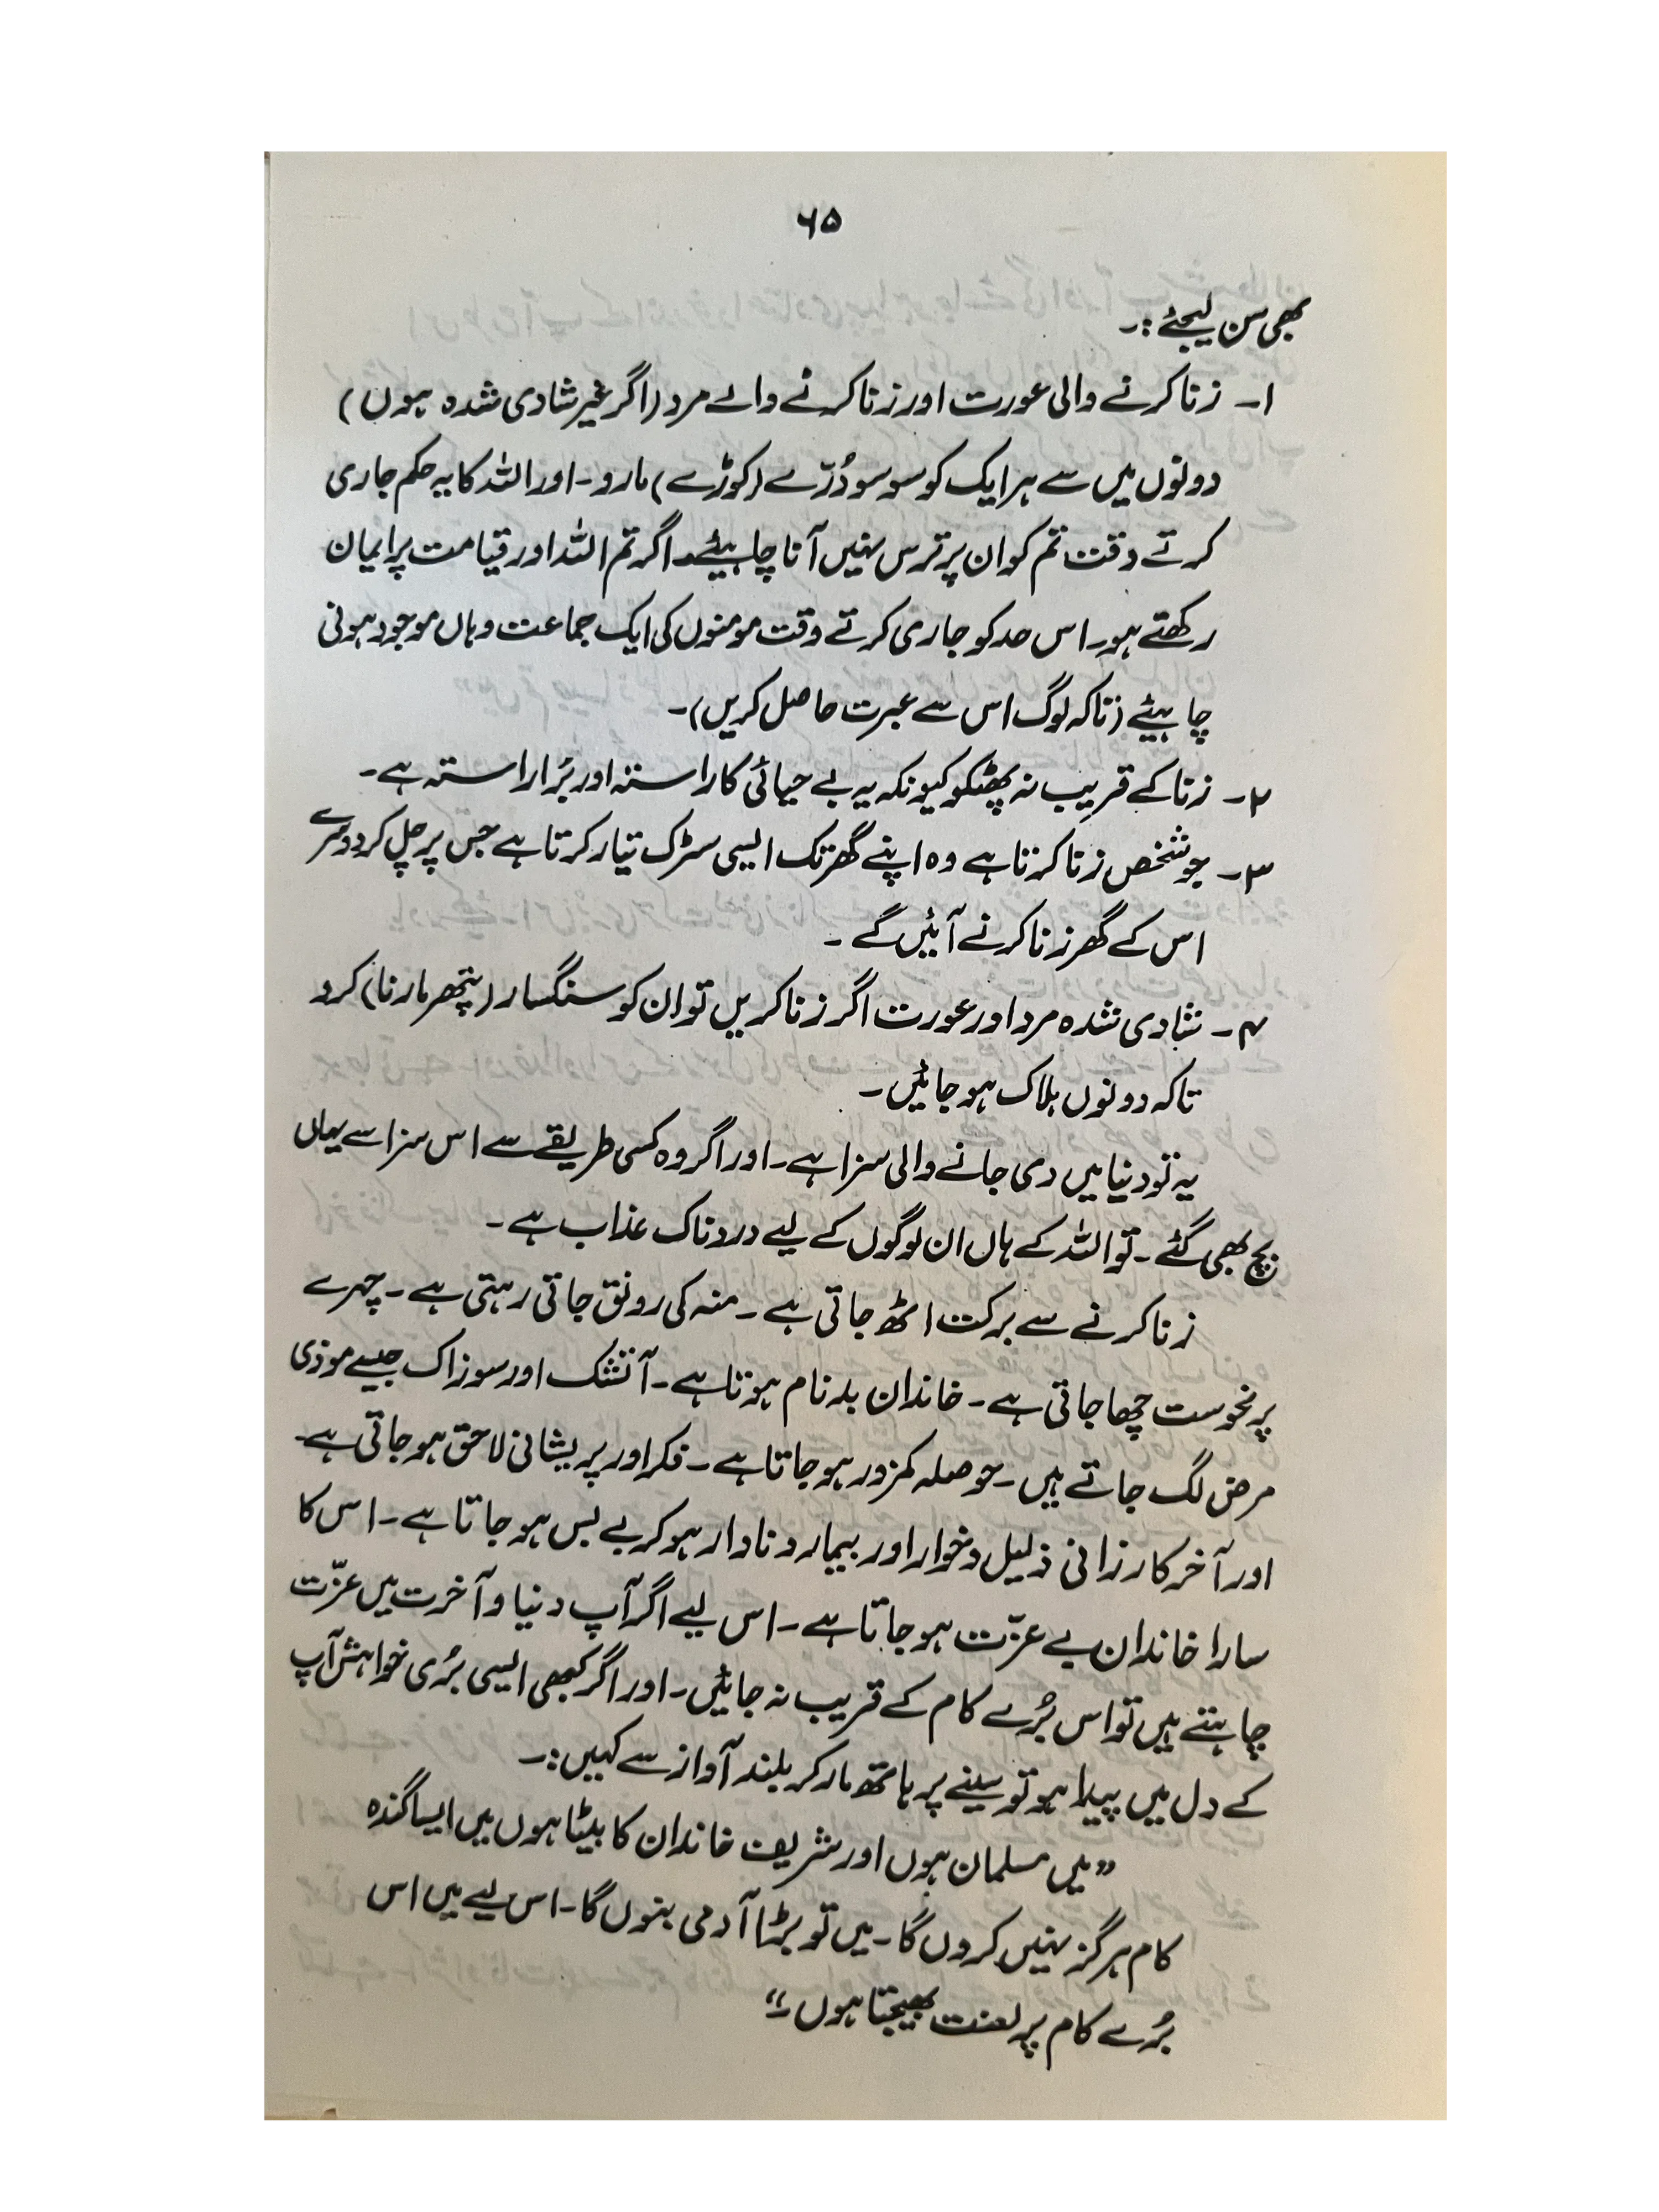 ۶۵
بھی سن لیجئے :۔
۱۔ زنا کرنے والی عورت اور زنا کرنے والے مرد (اگر غیر شادی شدہ ہوں)
دونوں میں سے ہر ایک کو سو سو دُرّے (کوڑے) مارو۔ اور اللہ کا یہ حکم جاری
کرتے وقت تم کو ان پر ترس نہیں آنا چاہیئے۔ اگر تم اللہ اور قیامت پر ایمان
رکھتے ہو۔ اس حد کو جاری کرتے وقت مومنوں کی ایک جماعت وہاں موجود ہونی
چاہیئے (تاکہ لوگ اس سے عبرت حاصل کریں)۔
۲۔ زنا کے قریب نہ پھٹکو کیونکہ یہ بے حیائی کا راستہ اور بُرا راستہ ہے۔
۳۔ جو شخص زنا کرتا ہے وہ اپنے گھر تک ایسی سڑک تیار کرتا ہے جس پر چل کر دوسرے
اس کے گھر زنا کرنے آئیں گے۔
۴۔ شادی شدہ مرد اور عورت اگر زنا کریں تو ان کو سنگسار (پتھر مارنا) کرو
تاکہ دونوں ہلاک ہو جائیں۔
یہ تو دنیا میں دی جانے والی سزا ہے۔ اور اگر وہ کسی طریقے سے اس سزا سے یہاں
بچ بھی گئے۔ تو اللہ کے ہاں ان لوگوں کے لیے دردناک عذاب ہے۔
زنا کرنے سے برکت اٹھ جاتی ہے۔ منہ کی رونق جاتی رہتی ہے۔ چہرے
پر نحوست چھا جاتی ہے۔ خاندان بدنام ہوتا ہے۔ آتشک اور سوزاک جیسے موذی
مرض لگ جاتے ہیں۔ حوصلہ کمزور ہو جاتا ہے۔ فکر اور پریشانی لاحق ہو جاتی ہے۔
اور آخر کار زانی ذلیل و خوار اور بیمار و نادار ہو کر بے بس ہو جاتا ہے۔ اس کا
سارا خاندان بے عزّت ہو جاتا ہے۔ اس لیے اگر آپ دنیا و آخرت میں عزّت
چاہتے ہیں تو اس بُرے کام کے قریب نہ جائیں۔ اور اگر کبھی ایسی بُری خواہش آپ
کے دل میں پیدا ہو تو سینے پر ہاتھ مار کر بلند آواز سے کہیں :۔
”میں مسلمان ہوں اور شریف خاندان کا بیٹا ہوں میں ایسا گندہ
کام ہرگز نہیں کروں گا۔ میں تو بڑا آدمی بنوں گا۔ اس لیے میں اس
بُرے کام پر لعنت بھیجتا ہوں۔“